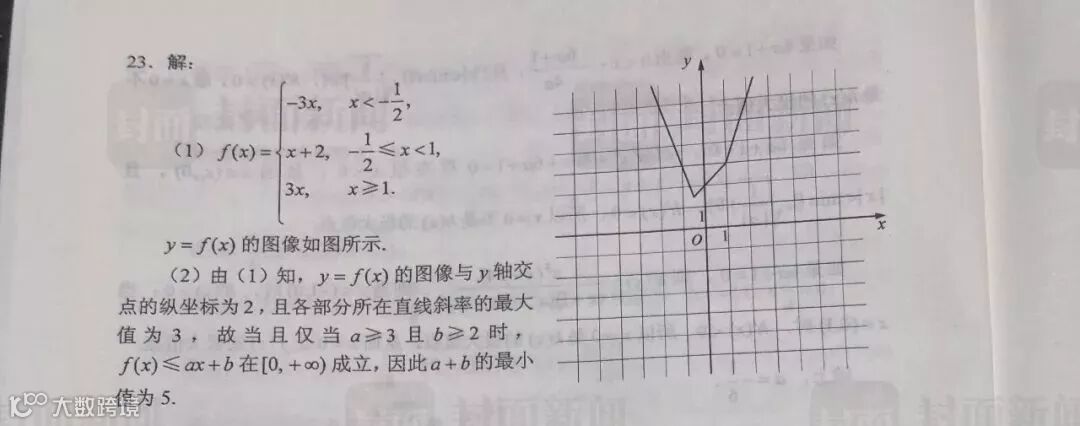 23. 解:
-3x, x<-1/2,
(1) f(x)={x+2, -1/2≤x<1,
3x, x≥1.
y=f(x) 的图像如图所示.
(2)由(1)知, y=f(x) 的图像与 y 轴交
点的纵坐标为2,且各部分所在直线斜率的最大
值为3,故当且仅当 a≥3 且 b≥2 时,
f(x)≤ax+b 在[0,+∞)成立,因此 a+b 的最小
值为 5.
y
1
O 1
x
大数跨境